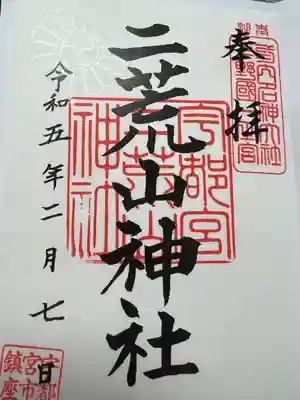 奉拝
二荒山神社
令和五年二月七日
宇都宮
二荒山
神社
宇都宮市鎮座